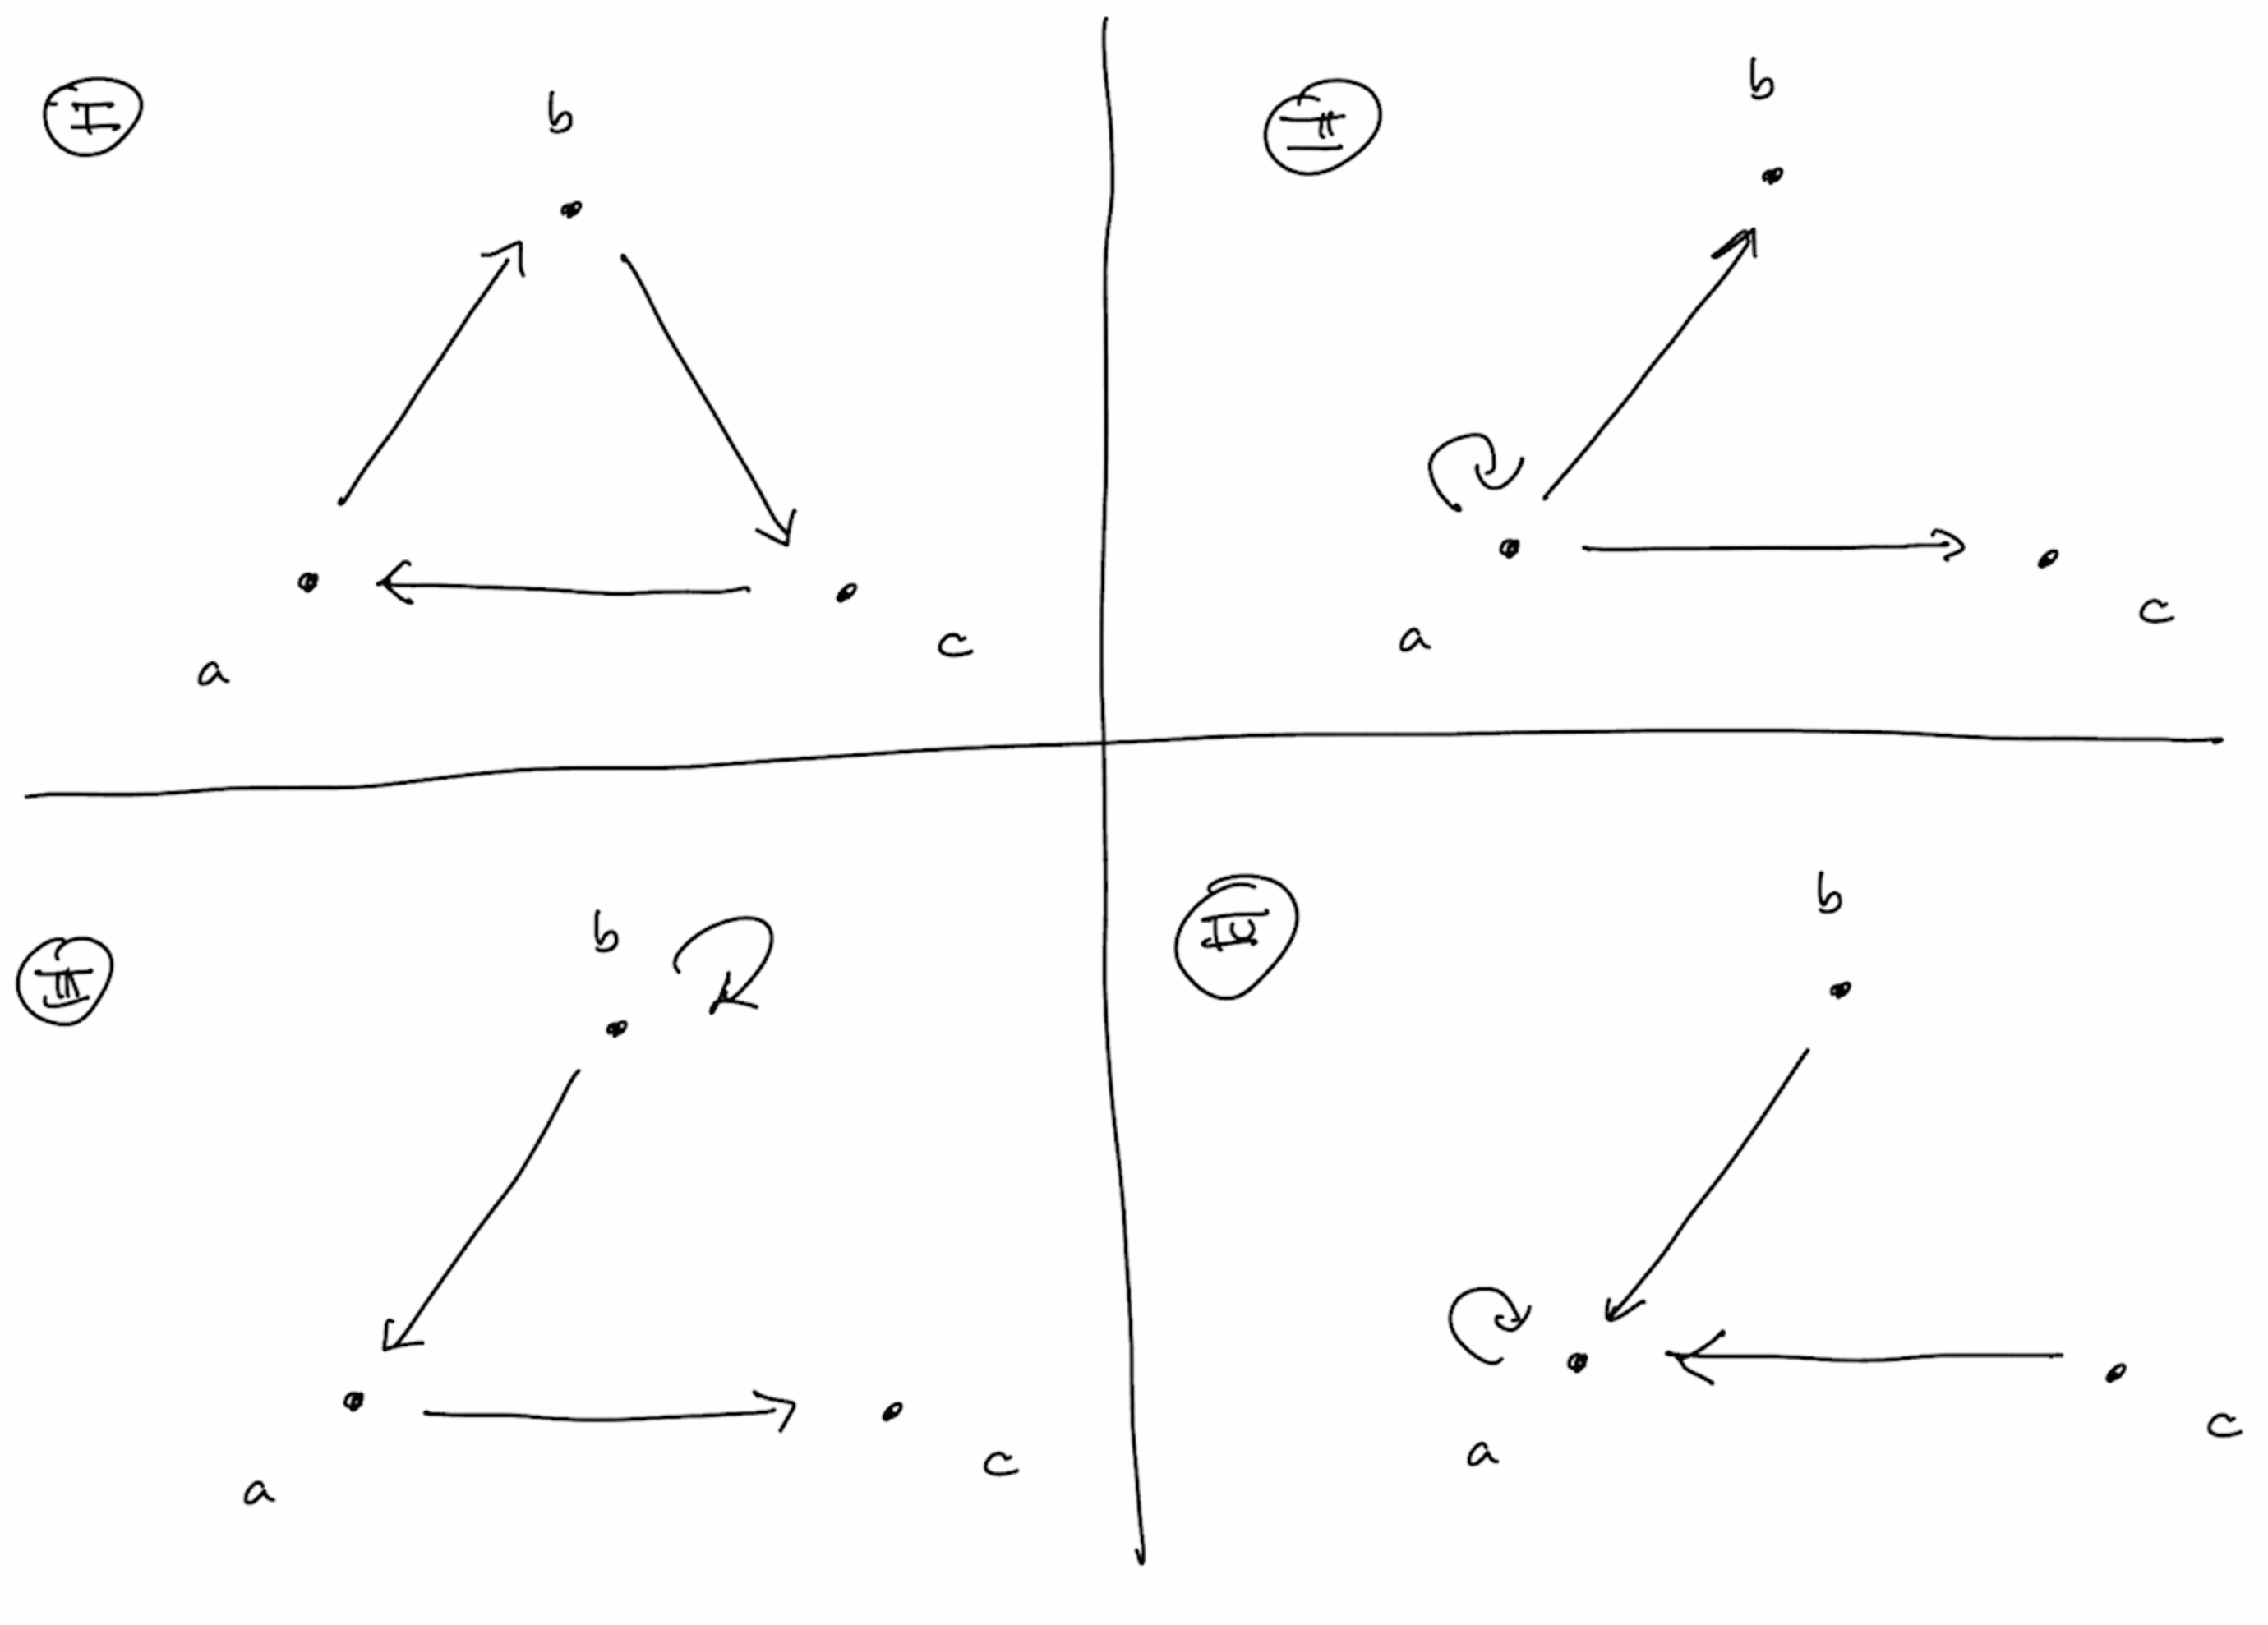 I
b
a
c
II
b
a
c
III
b
a
c
IV
b
a
c